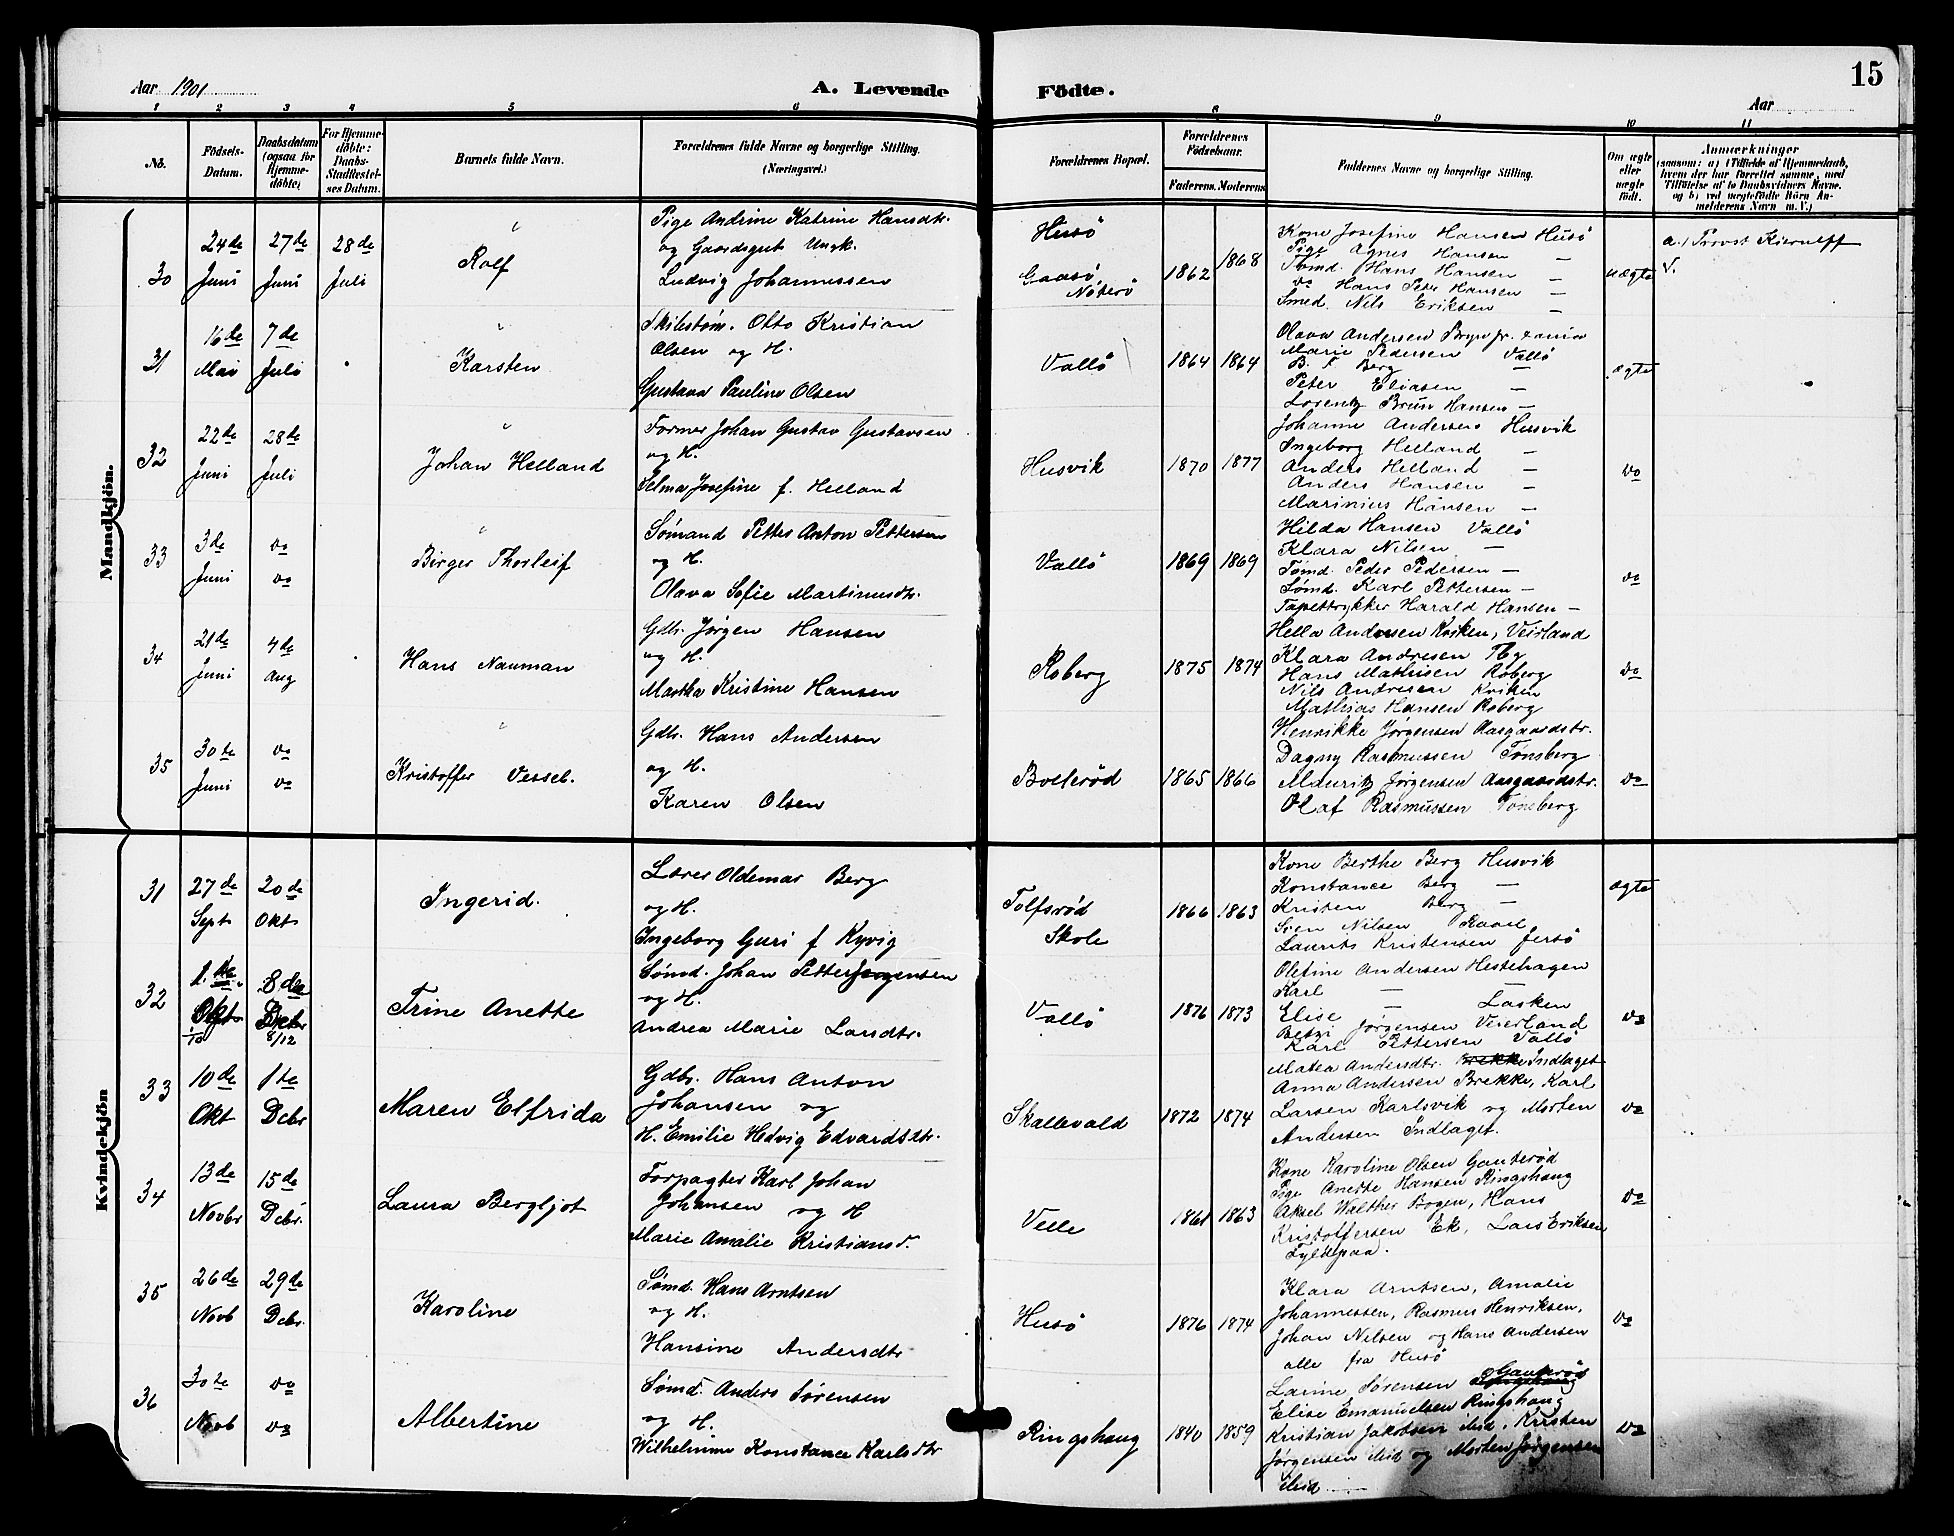 Aar 1901
A. Levende Födte.
Aar
15
1 2 3 4 5 6 8 9 10 11
No.
Födsels-Datum.
Daabsdatum (ogsaa for Hjemme-döbte)
For Hjemme-döbte: Daabs-Stadfæstel-ses Datum.
Barnets fulde Navn.
Forældrenes fulde Navne og borgerlige Stilling. (Næringsvei.)
Forældrenes Bopæl.
Forældrenes Födselsaar.
Faderens. Moderens.
Faddernes Navne og borgerlige Stilling.
Om ægte eller uægte født.
Anmærkninger
(saasom: a) i Tilfælde af Hjemmedaab, hvem der har forrettet samme, med Tilföielse af to Daabsvidners Navne. og b) ved uægtefödte Börn Anmelderens Navn m. V.)
Mandkjön.
30
24de Juni
27de Juni
28de Juli
Rolf
Pige Andrine Katrine Hansdtr.
og Gaardsgut Ungk.
Ludvig Johannessen
Husö
Gaasö
Nöterö
1862 1868
Kone Josefine Hansen Husö
Pige Agnes Hansen —
Tømd. Hans Hansen —
do Hans Peter Hansen —
Smed Nils Eriksen —
uægte
a.) Provst Kierulff
31
16de Mai
7de Juli
Karsten
Skibstøm. Otto Kristian
Olsen og H.
Gustava Pauline Olsen
Vallö
1864 1864
Olava Andersen
Marie Pedersen Vallö
B. F Berg —
Peter Eliasen —
Lorentz Brun Hansen —
ægte
32
22de Juni
28de Juli
Johan Helland
Former Johan Gustav Gustavsen
og H.
Selma Josefine f. Helland
Husvik
1870 1877
Johanne Andersen Husvik
Ingeborg Helland —
Anders Helland —
Anders Hansen —
Marinius Hansen —
do
33
3de Juni
do
do
Birger Thorleif
Sømand Petter Anton Pettersen
og H.
Olava Sofie Martinusdtr.
Vallö
1869 1869
Hilda Hansen Vallö
Klara Nilsen —
Tømd. Peder Pedersen —
Sømd. Karl Pettersen —
Tapettrykker Harald Hansen —
do
34
21de Juni
4de Aug
Hans Nauman
Gdbr. Jørgen Hansen
og H.
Martha Kristine Hansen
Roberg
1875 1874
Hella Andersen Kviken, Veierland
Klara Andresen Tbg
Hans Mathisen Roberg
Nils Andresen Kviken
Mathias Hansen Roberg
do
35
30te Juni
do
do
Kristoffer Vessel.
Gdbr. Hans Andersen
og H.
Karen Olsen
Bolterød
1865 1866
Henrikke Jørgensen Aasgaardstr.
Dagny Rasmussen Tønsberg
Mauritz Jørgensen Aasgaardstr.
Olaf Rasmussen Tønsberg
do
Kvindekjön
31
27de Sept
20de Okt
Ingerid.
Lærer Oldemar Berg
og H.
Ingeborg Guri f Kyvig
Tolfsrød
Skole
1866 1863
Kone Berthe Berg Husvik
Konstance Berg —
Kristen Berg —
Sven Nilsen Ravel
Laurits Kristensen Jersö
ægte
32
1.ste Okt
1/10
8de Dcbr
8/12
Trine Anette
Sømd. Johan Petter Jørgensen
og H.
Andrea Marie Larsdtr.
Vallö
1876 1873
Olefine Andersen Hestehagen
Karl — —
Elise — Lasken
Betzi Jørgensen Veierland
Karl Pettersen Vallö
do
33
10de Okt
1te Dcbr
Maren Elfrida
Gdbr. Hans Anton
Johansen og
H. Emilie Hedvig Edvardsdtr.
Skallevald
1872 1874
Matea Andersdtr. Brekke Indlaget
Anna Andersen Brekke, Karl
Larsen Karlsvik og Morten
Andersen Indlaget.
do
34
13de Novbr
15de Dcbr.
Laura Bergljot
Forpagter Karl Johan
Johansen og H
Marie Amalie Kristiansd.
Velle
1861 1863
Kone Karoline Olsen Gauterød
Pige Anette Hansen Ringshaug
Aksel Walther Bogen, Hans
Kristoffersen Ek, Lars Eriksen
Fyldpaa.
do
35
26de Novb
29de Dcbr.
Karoline
Sømd. Hans Arntsen
og H.
Hansine Andersdtr
Husö
1876 1874
Klara Arntsen, Amalie
Johannessen, Rasmus Henriksen,
Johan Nilsen og Hans Andersen
alle fra Husö
do
36
30te Novb
do
do
Albertine
Sømd. Anders Sørensen
og H.
Wilhelmine Konstance Karlsdtr
Ringshaug
1840 1859
Larine Sørensen Ringshaug Gauterød
Elise Emanuelsen Ringshaug
Kristian Jakobsen ibid, Kristen
Jørgensen ibid og Morten Jørgensen
ibid
do